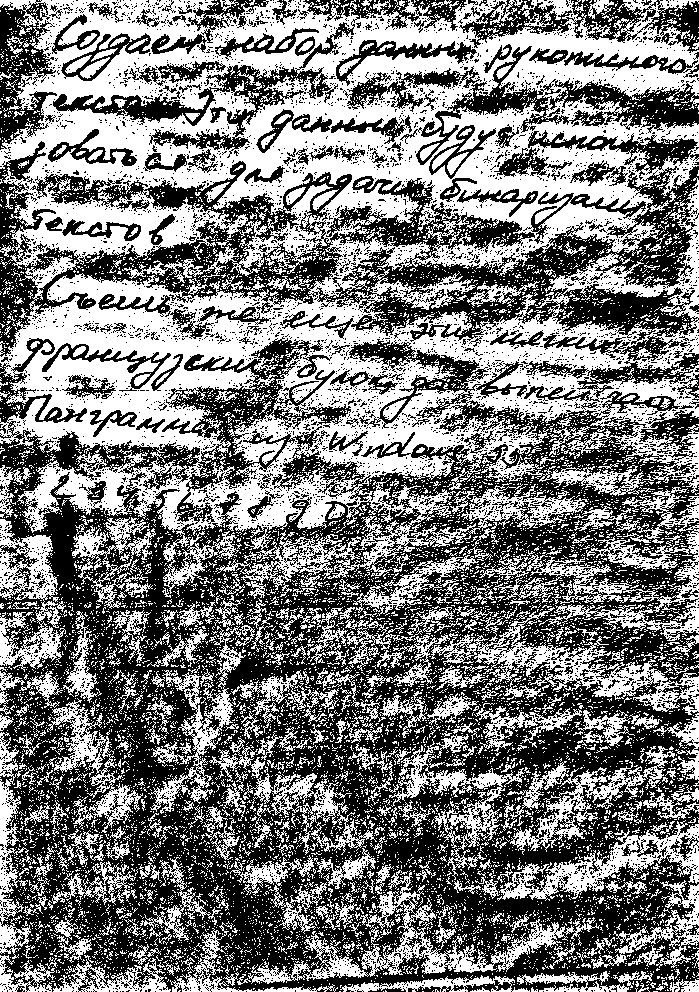 Создаем набор данных рукописного
текста Эти данные будут исполь
зоваться для задачи бинаризации
текстов
Съешь же еще этих мягких
французских булок, да выпей чаю
Панграмма из Windows 95
1 2 3 4 5 6 7 8 9 0